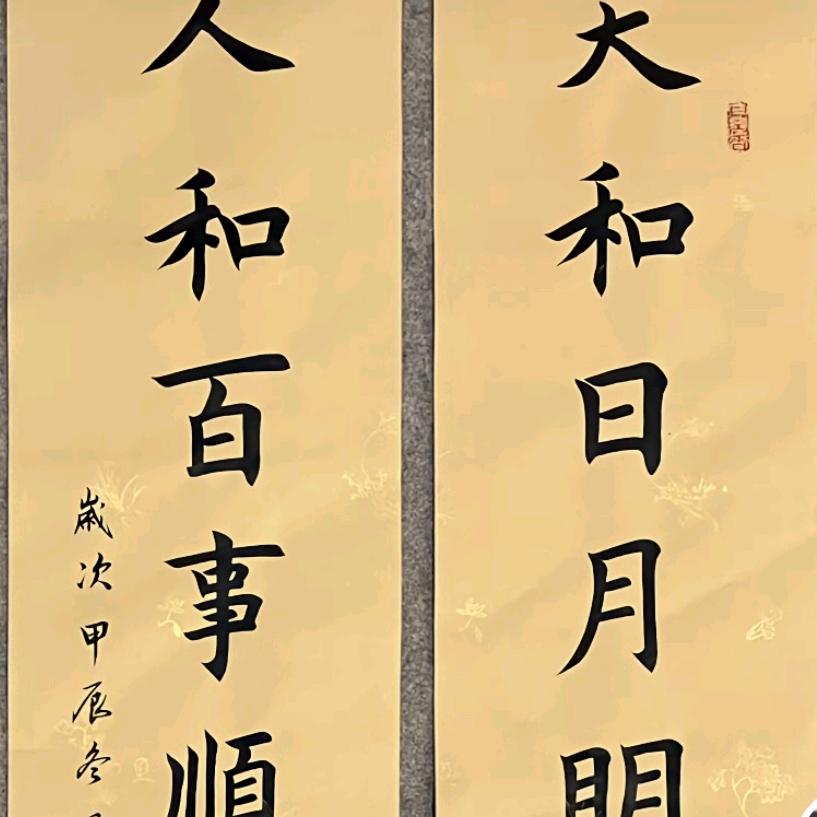 大和日月明
人和百事順
歲次甲辰冬